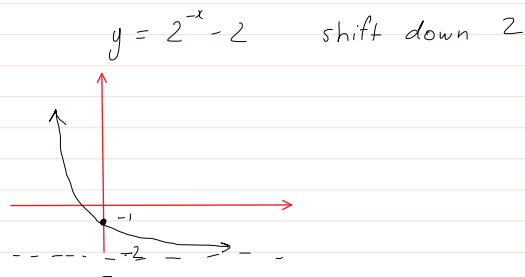 y = 2^{-x} - 2 shift down 2
-1
-2